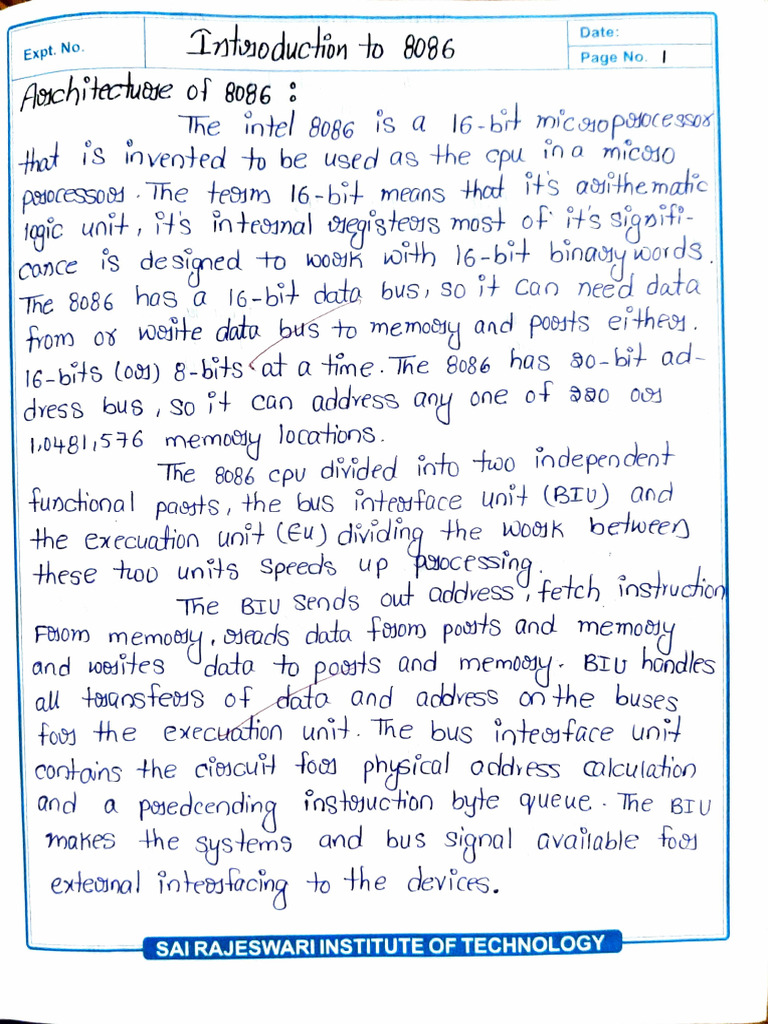 Expt. No.
Introduction to 8086
Date:
Page No. 1
Architecture of 8086 :
The intel 8086 is a 16-bit microprocessor
that is invented to be used as the cpu in a micro
processor. The term 16-bit means that it's arithematic
logic unit, it's internal registers most of it's signifi-
cance is designed to work with 16-bit binary words.
The 8086 has a 16-bit data bus, so it can need data
from or write data bus to memory and ports either.
16-bits (or) 8-bits at a time. The 8086 has 20-bit ad-
dress bus, so it can address any one of 220 or
1,0481,576 memory locations.
The 8086 cpu divided into two independent
functional parts, the bus interface unit (BIU) and
the execuation unit (EU) dividing the work between
these two units speeds up processing.
The BIU sends out address, fetch instruction
From memory, reads data from ports and memory
and writes data to ports and memory. BIU handles
all transfers of data and address on the buses
for the execuation unit. The bus interface unit
contains the circuit for physical address calculation
and a predcending instruction byte queue. The BIU
makes the systems and bus signal available for
external interfacing to the devices.
SAI RAJESWARI INSTITUTE OF TECHNOLOGY